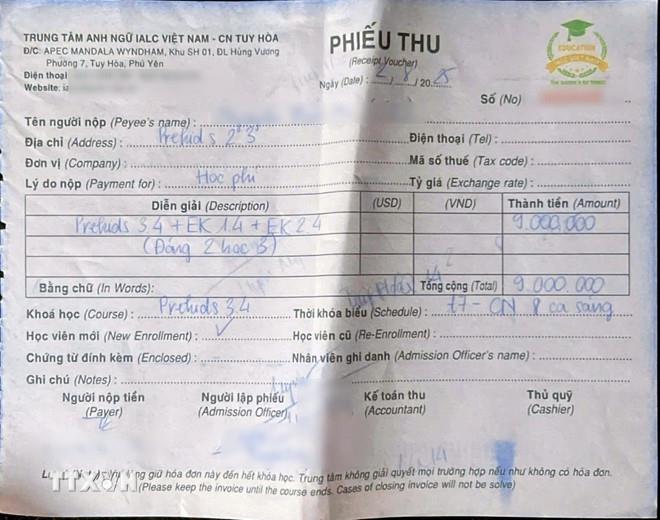 TRUNG TÂM ANH NGỮ IALC VIỆT NAM - CN TUY HÒA
Đ/C: APEC MANDALA WYNDHAM, Khu SH 01, ĐL Hùng Vương
Phường 7, Tuy Hòa, Phú Yên
Điện thoại
Website:
PHIẾU THU
(Receipt Voucher)
Ngày (Date): 2/8/2025
EDUCATION
Số (No)
Tên người nộp (Peyee's name) :
Địa chỉ (Address) : Prekids 2 3
Điện thoại (Tel) :
Đơn vị (Company) :
Mã số thuế (Tax code) :
Lý do nộp (Payment for) : Học phí
Tỷ giá (Exchange rate) :
Diễn giải (Description) (USD) (VND) Thành tiền (Amount)
Prekids 3.4 + EK 1.4 + EK 2.4 9.000.000
(Đóng 2 học 3)
Bằng chữ (In Words): Tổng cộng (Total) 9.000.000
Khoá học (Course) : Prekids 3.4
Thời khóa biểu (Schedule) : T7 - CN ca sáng
Học viên mới (New Enrollment) : ✓
Học viên cũ (Re-Enrollment) :
Chứng từ đính kèm (Enclosed) :
Nhân viên ghi danh (Admission Officer's name) :
Ghi chú (Notes) :
Người nộp tiền Người lập phiếu Kế toán thu Thủ quỹ
(Payer) (Admission Officer) (Accountant) (Cashier)
giữ hóa đơn này đến hết khóa học. Trung tâm không giải quyết mọi trường hợp nếu như không có hóa đơn.
(Please keep the invoice until the course ends. Cases of closing invoice will not be solve)
TTXVN